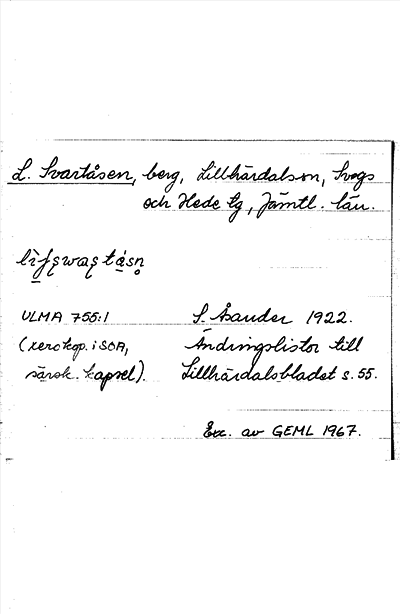 L. Svartåsen, berg, Lillhärdals sn, Svegs
och Hede tg, Jämtl. län.
ULMA 755:1 S. Åsander 1922.
(xerokop. i SOA, Ändringslistor till
särsk. kapsel). Lillhärdalsbladet s. 55.
Exc. av GEML 1967.